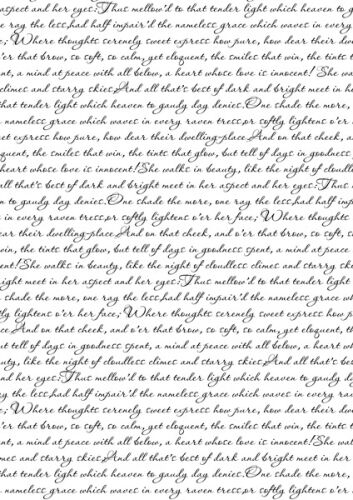 aspect and her eyes:Thus mellow'd to that tender light which heaven to g
e ray the less,had half impair'd the nameless grace which waves in every
e; Where thoughts serenely sweet express how pure, how dear their dwelling
o'er that brow, so soft, so calm, yet eloquent, the smiles that win, the tints t
nt, a mind at peace with all below, a heart whose love is innocent! She walk
climes and starry skies,And all that's best of dark and bright meet in her
that tender light which heaven to gaudy day denies.One shade the more, o
e nameless grace which waves in every raven tress,or softly lightens o'er he
eet express how pure, how dear their dwelling-place.And on that cheek, a
quent, the smiles that win, the tints that glow, but tell of days in goodness
heart whose love is innocent!She walks in beauty, like the night of cloudless
all that's best of dark and bright meet in her aspect and her eyes:Thus
n to gaudy day denies.One shade the more, one ray the less,had half impair
s in every raven tress,or softly lightens o'er her face; Where thoughts
ear their dwelling-place.And on that cheek, and o'er that brow, so soft, s
win, the tints that glow, but tell of days in goodness spent, a mind at peace
ent!She walks in beauty, like the night of cloudless climes and starry skie
ight meet in her aspect and her eyes:Thus mellow'd to that tender light
shade the more, one ray the less,had half impair'd the nameless grace wh
tly lightens o'er her face; Where thoughts serenely sweet express how pure, ho
ce.And on that cheek, and o'er that brow, so soft, so calm, yet eloquent, th
tell of days in goodness spent, a mind at peace with all below, a heart
uty, like the night of cloudless climes and starry skies,And all that's best
nd her eyes:Thus mellow'd to that tender light which heaven to gaudy da
ay the less,had half impair'd the nameless grace which waves in every rave
; Where thoughts serenely sweet express how pure, how dear their dwelling-pl
er that brow, so soft, so calm, yet eloquent, the smiles that win, the tints th
nt, a mind at peace with all below, a heart whose love is innocent!She wal
mes and starry skies,And all that's best of dark and bright meet in her a
hat tender light which heaven to gaudy day denies.One shade the more,
nameless grace which waves in every raven tress,or softly lightens o'er her